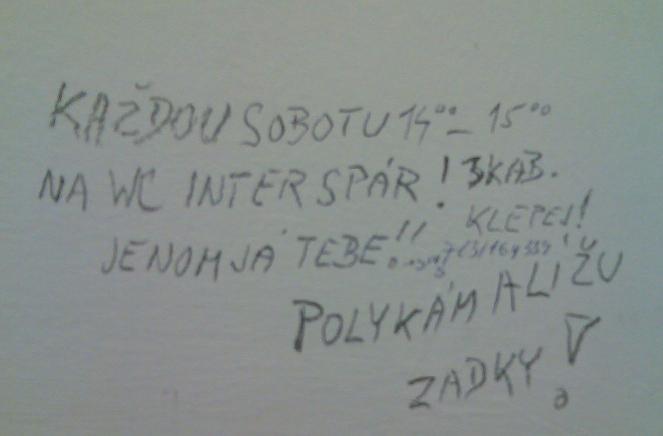 KAŽDOU SOBOTU 14⁰⁰ - 15⁰⁰
NA WC INTERSPÁR! 3KAB.
KLEPEJ!
JENOM JÁ TEBE!!
POLYKÁM A LIŽU
ZADKY!